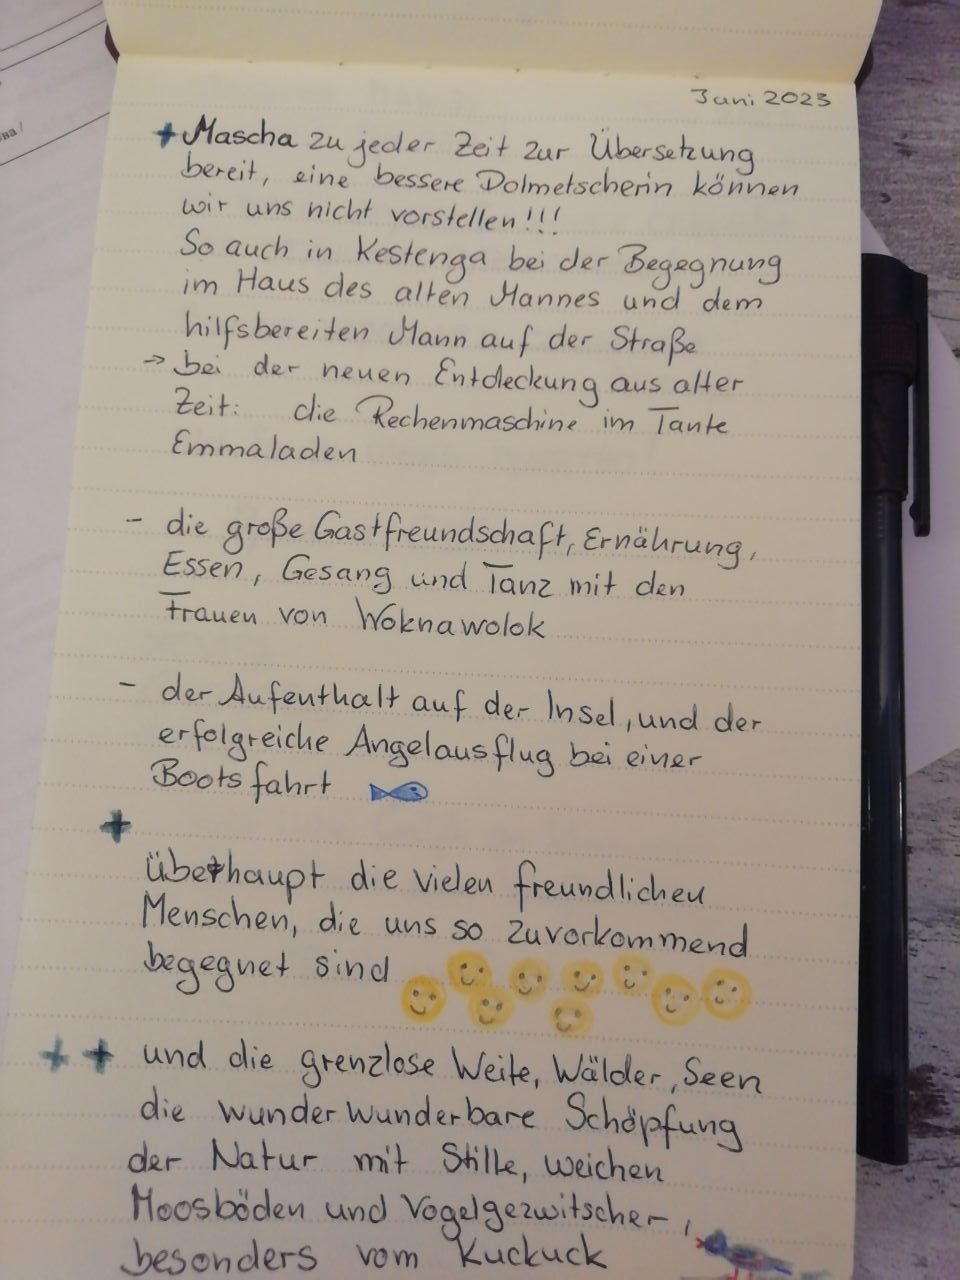 Juni 2023
+ Mascha zu jeder Zeit zur Übersetzung
bereit, eine bessere Dolmetscherin können
wir uns nicht vorstellen!!!
So auch in Kestenga bei der Begegnung
im Haus des alten Mannes und dem
hilfsbereiten Mann auf der Straße
→ bei der neuen Entdeckung aus alter
Zeit: die Rechenmaschine im Tante
Emmaladen
- die große Gastfreundschaft, Ernährung,
Essen, Gesang und Tanz mit den
Frauen von Woknawolok
- der Aufenthalt auf der Insel, und der
erfolgreiche Angelausflug bei einer
Bootsfahrt
+
überhaupt die vielen freundlichen
Menschen, die uns so zuvorkommend
begegnet sind
+ + und die grenzlose Weite, Wälder, Seen
die wunderwunderbare Schöpfung
der Natur mit Stille, weichen
Moosböden und Vogelgezwitscher,
besonders vom Kuckuck